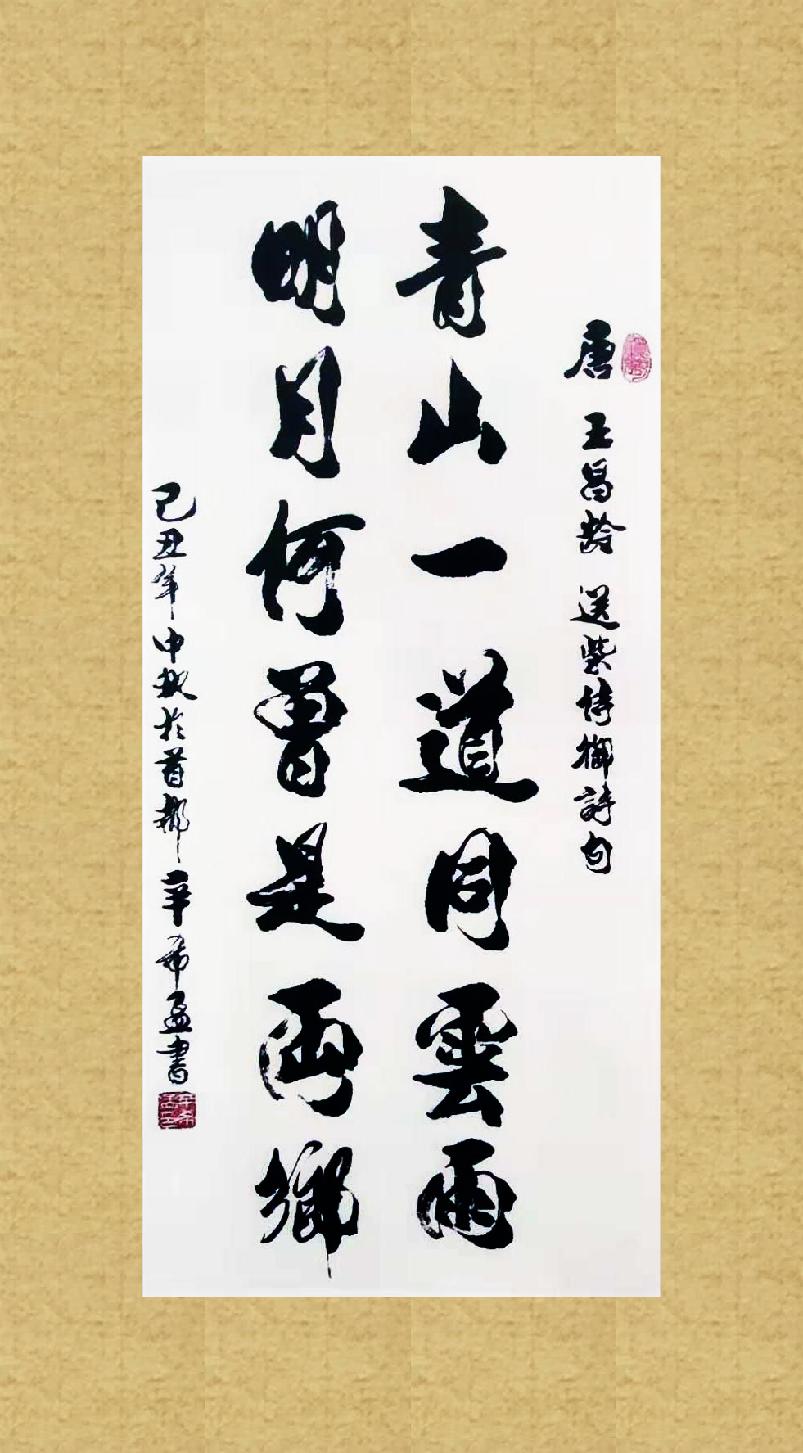 唐 王昌龄 送柴侍御詩句
青山一道同雲雨
明月何曽是両鄉
己丑年中秋於首都 辛希孟書